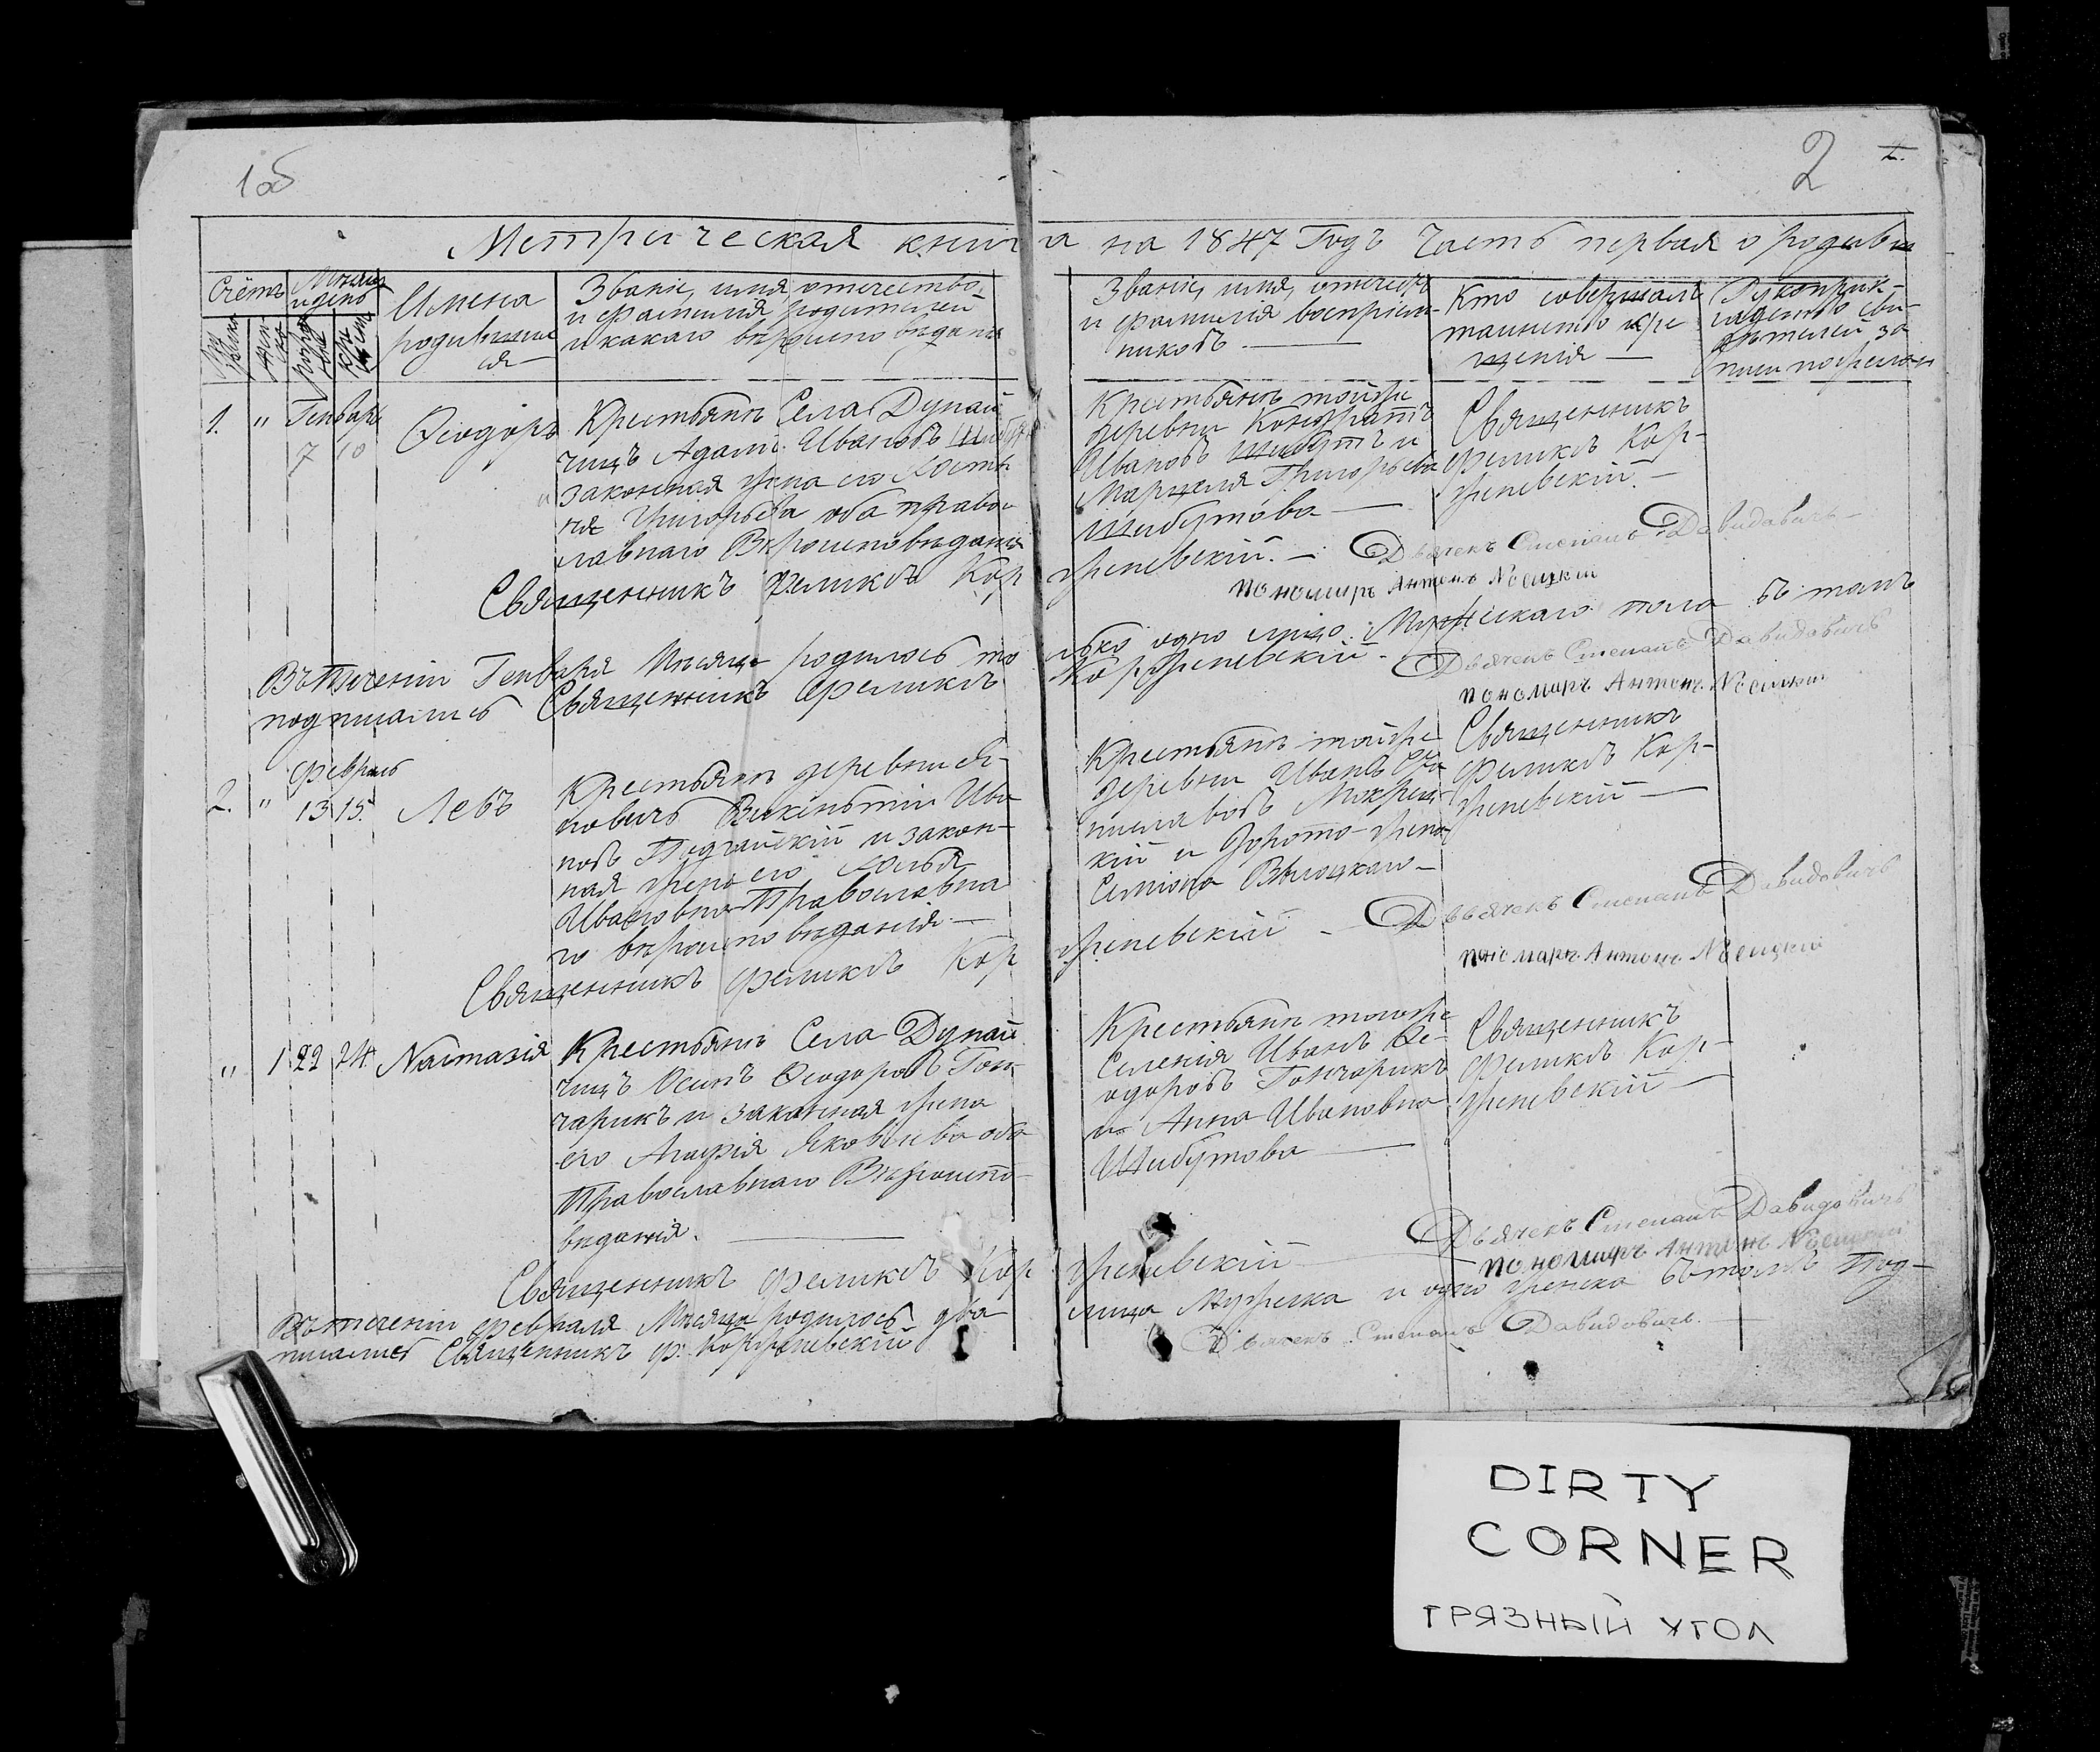 1об
2
Метрическая книга на 1847 Годъ Часть первая о родивш
Счётъ
Мѣсяцъ и день
Имена
родивших
ся
Званіе, имя отечество,
и фамилія родителей
и какаго вѣроисповѣданія
Званіе, имя, отечеств
и фамилія воспріем-
никовъ
Кто совершалъ
таинство кре
щенія
Рукоприк-
ладство сви-
дѣтелей за
писи по желан
1. " Генварь
7 10 Ѳеодоръ
Крестьянъ Села Дунай
чицъ Адамъ Ивановъ
законная жена его
Григорьева оба право-
славнаго Вѣроисповѣданія
Крестьянъ тойже
деревни Кондратъ
Ивановъ Шибутъ и
Марцеля Григорьева
Шибутова
Священникъ
Феликсъ Кор-
женевскій.
Священникъ Феликсъ Кор
женевскій. Дьячекъ Степанъ Давидовичъ
пономарь Антонъ
Въ теченіи Генваря Мѣсяца родилось то
лько одно лицо Мужескаго пола въ томъ
подписались Священникъ Феликсъ
Корженевскій Дьячекъ Степанъ Давидовичъ
пономарь Антонъ
Февраль
2. " 13 15. Левъ
Крестьянъ деревни
новичъ Викентій Ива
новъ и закон-
ная жена его
Ивановна Православна
го вѣроисповѣданія
Крестьянъ тойже
деревни Иванъ
кій и жена
Семіона
Священникъ
Феликсъ Кор-
женевскій
Священникъ Феликсъ Кор
женевскій Дьячекъ Степанъ Давидовичъ
пономарь Антонъ
" 1 22 24. Настазія
Крестьянъ Села Дунай
чицъ Осипъ Ѳеодоровъ Гон-
чарикъ и законная жена
его Агафія Яковлева оба
Православнаго Вѣроиспо-
вѣданія.
Крестьянъ тогоже
Селенія Иванъ Ѳе-
одоровъ Гончарикъ
и Анна Ивановна
Шибутова
Священникъ
Феликсъ Кор-
женевскій
Священникъ Феликсъ Кор
женевскій
Дьячекъ Степанъ Давидовичъ
пономарь Антонъ
Въ теченіи февраля Мѣсяца родилось два
лица Мужеска и одно женска въ томъ Под-
писались Священникъ Ф: Корженевскій
Дьячекъ Степанъ Давидовичъ.
DIRTY
CORNER
ГРЯЗНЫЙ УГОЛ